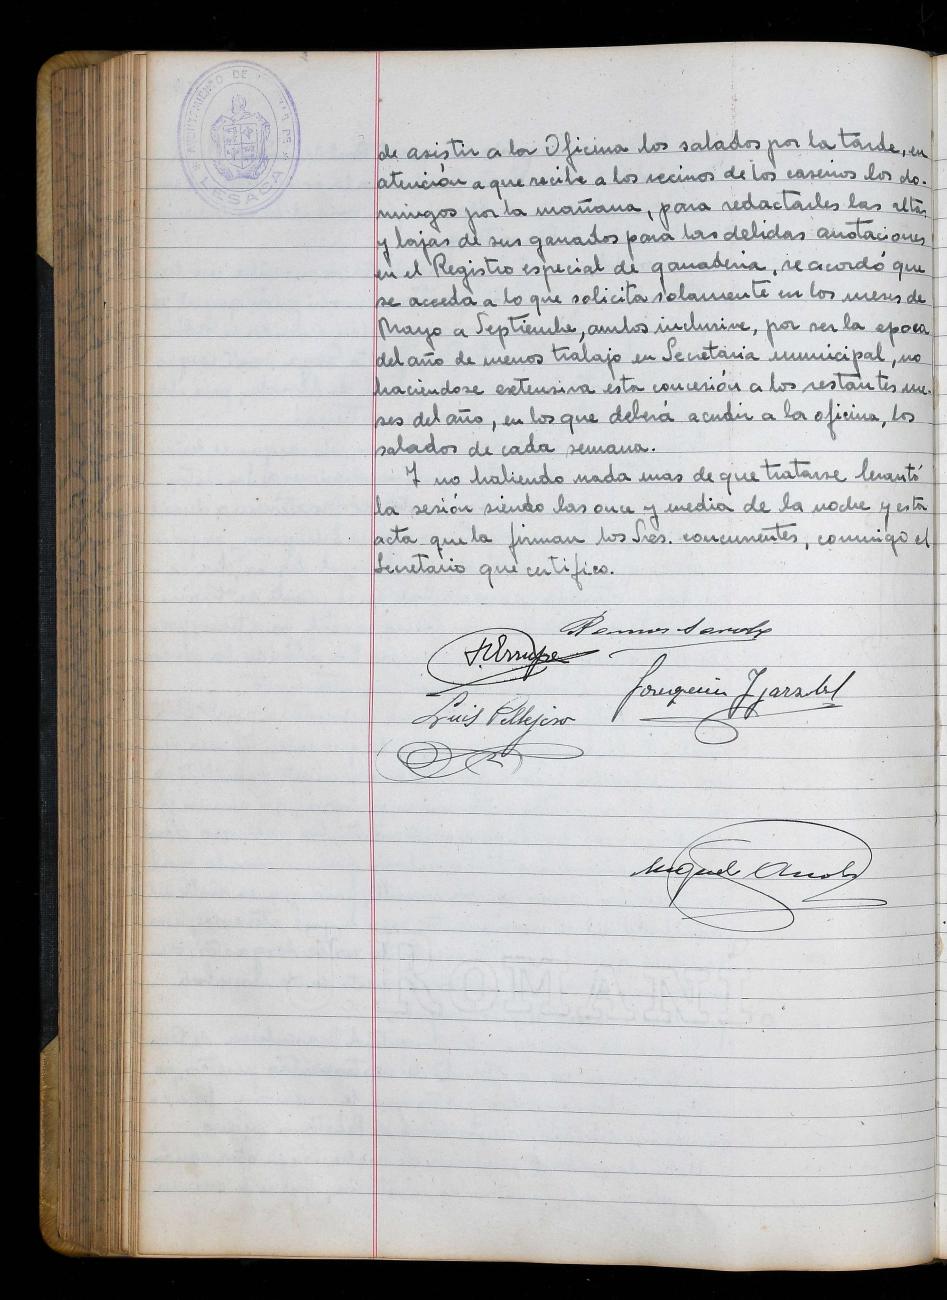 de asistir a la Oficina los salados por la tarde, en
atención a que recibe a los vecinos de los caserios los do-
mingos por la mañana, para redactarles las altas
y bajas de sus ganados para las debidas anotaciones
en el Registro especial de ganaderia, se acordó que
se acceda a lo que solicita solamente en los meses de
Mayo a Septiembre, ambos inclusive, por ser la epoca
del año de menos trabajo en Secretaria municipal, no
haciendose extensiva esta concesión a los restantes me-
ses del año, en los que deberá acudir a la oficina, los
salados de cada semana.
Y no habiendo nada mas de que tratarse levantó
la sesión siendo las once y media de la noche y esta
acta que la firman los Sres. concurrentes, conmigo el
Secretario que certifico.
Luis Pellejero
Joaquin Ygarzabal
Miguel
AYUNTAMIENTO DE
LESACA